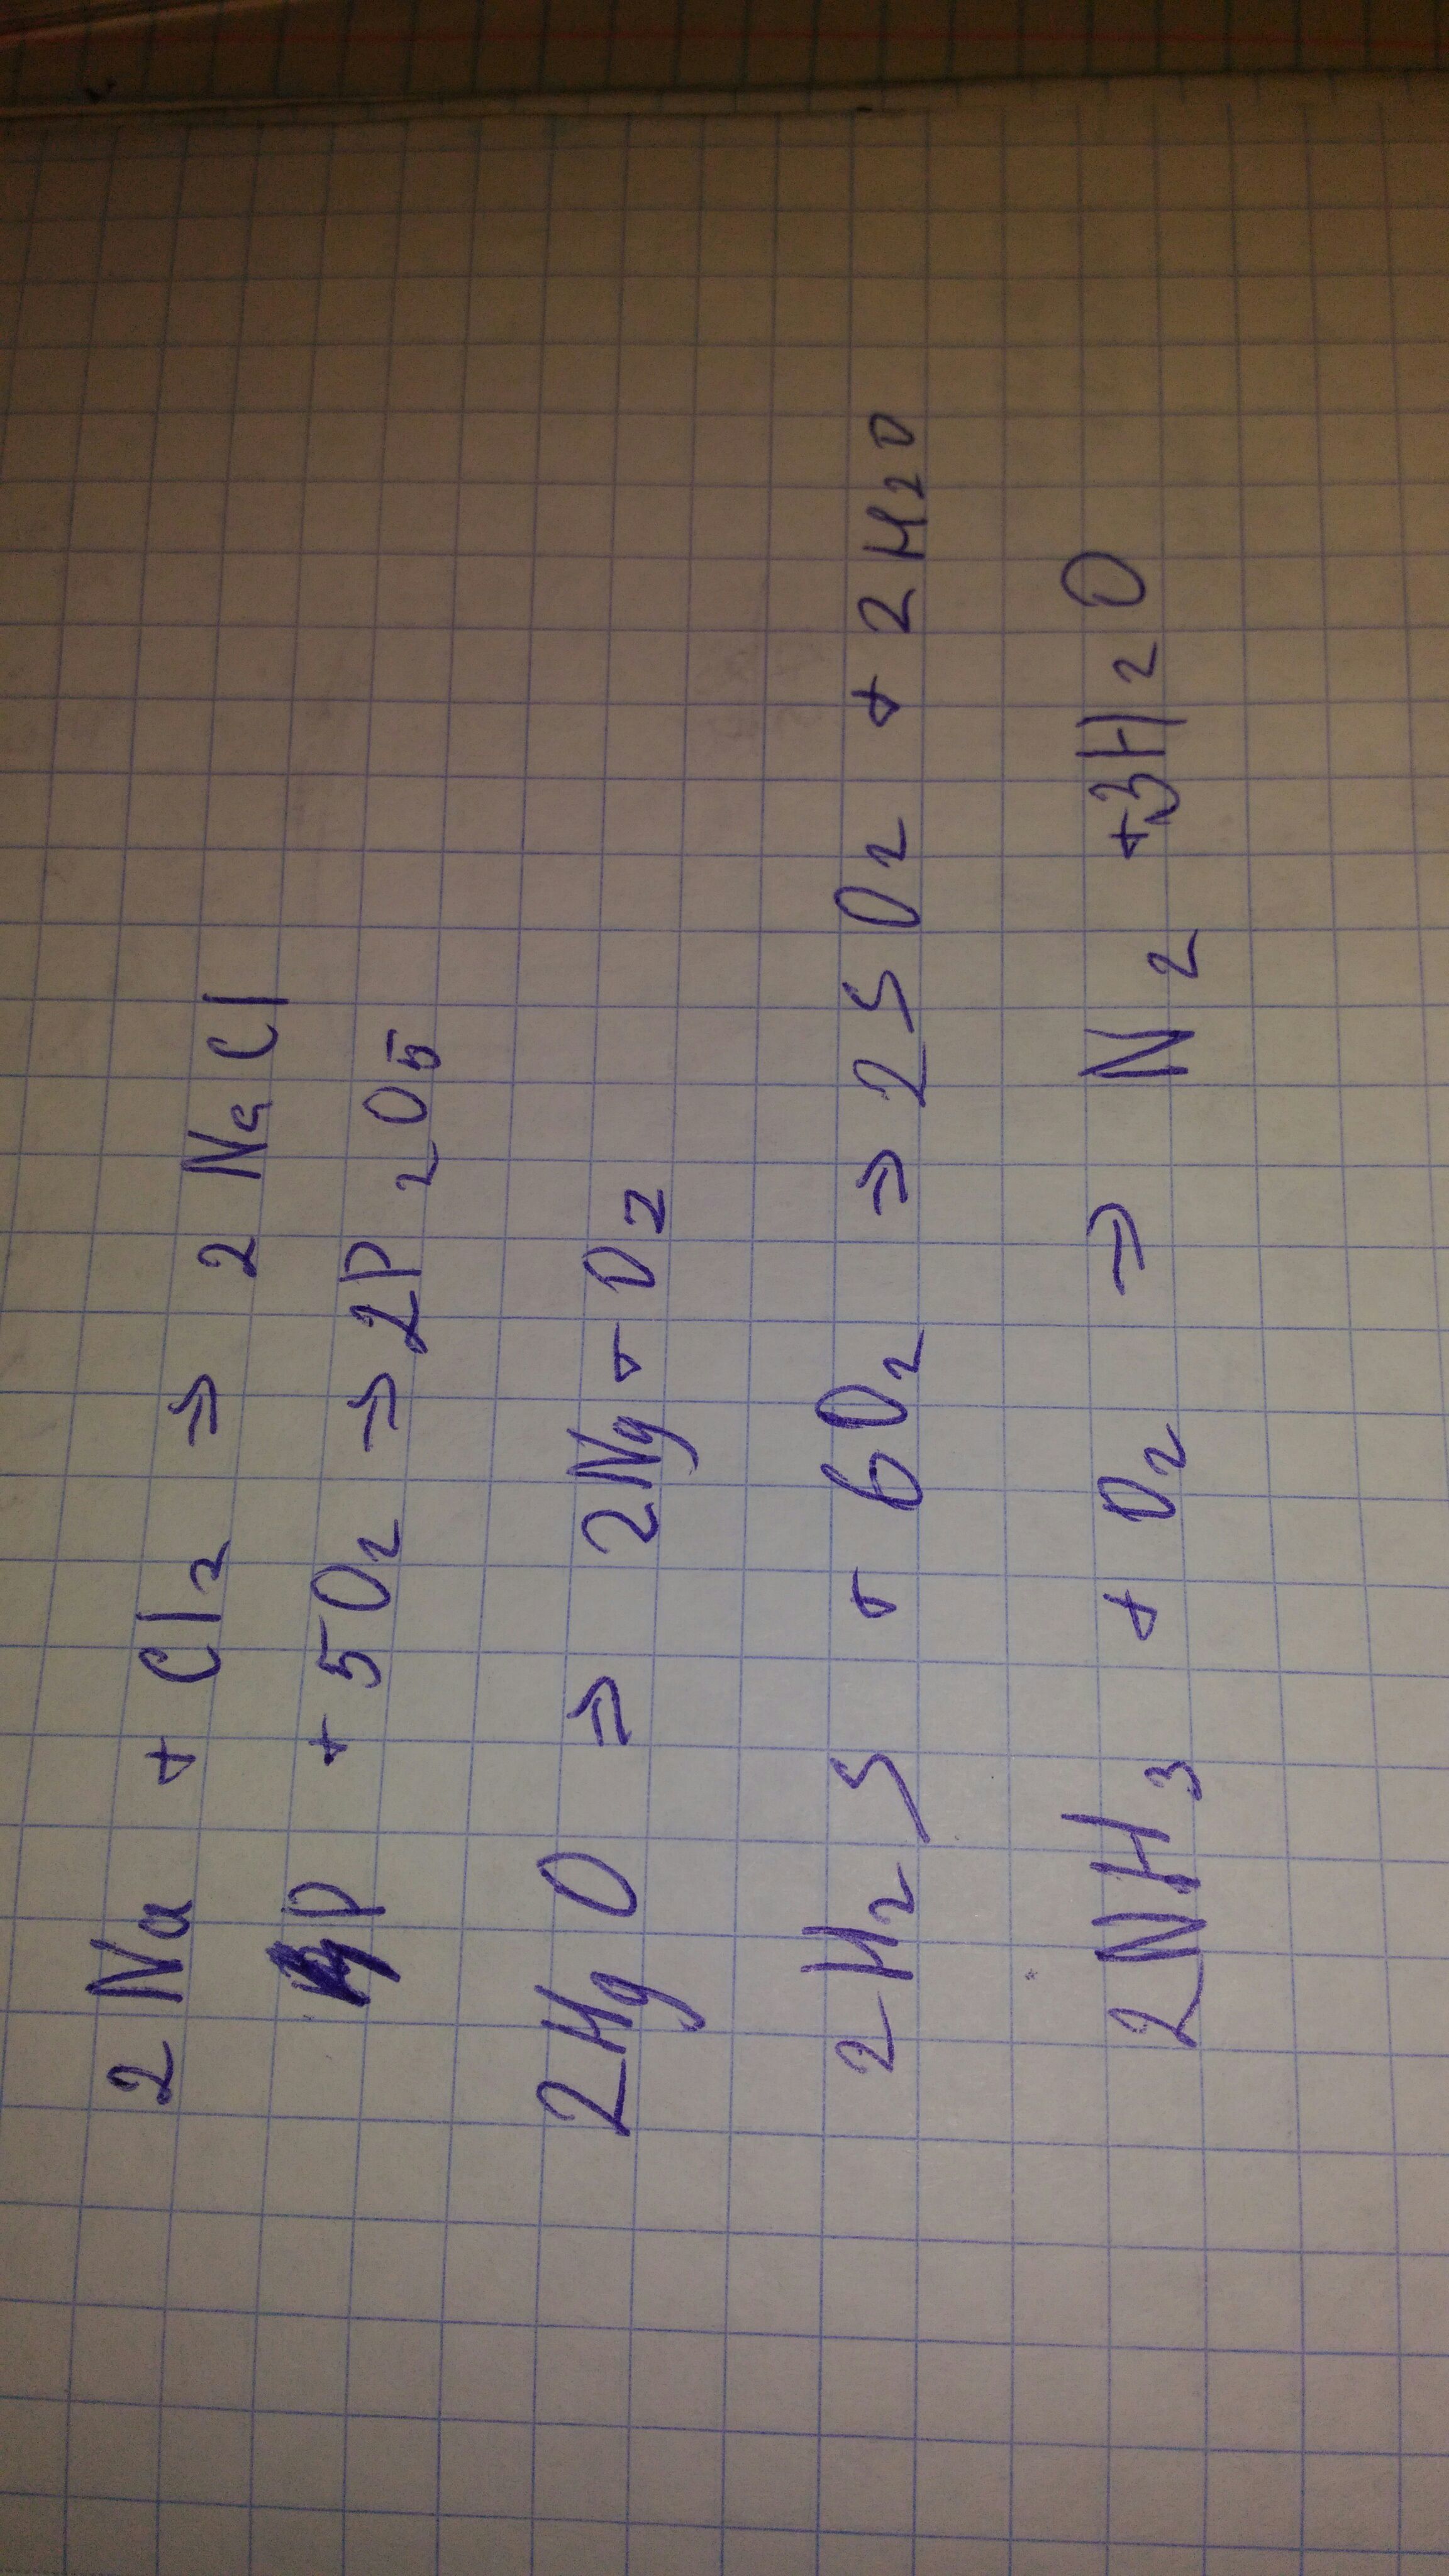 2Na + Cl2 ⇒ 2NaCl
4P + 5O2 ⇒ 2P2O5
2HgO ⇒ 2Ng + O2
2H2S + 6O2 ⇒ 2SO2 + 2H2O
2NH3 + O2 ⇒ N2 + 3H2O